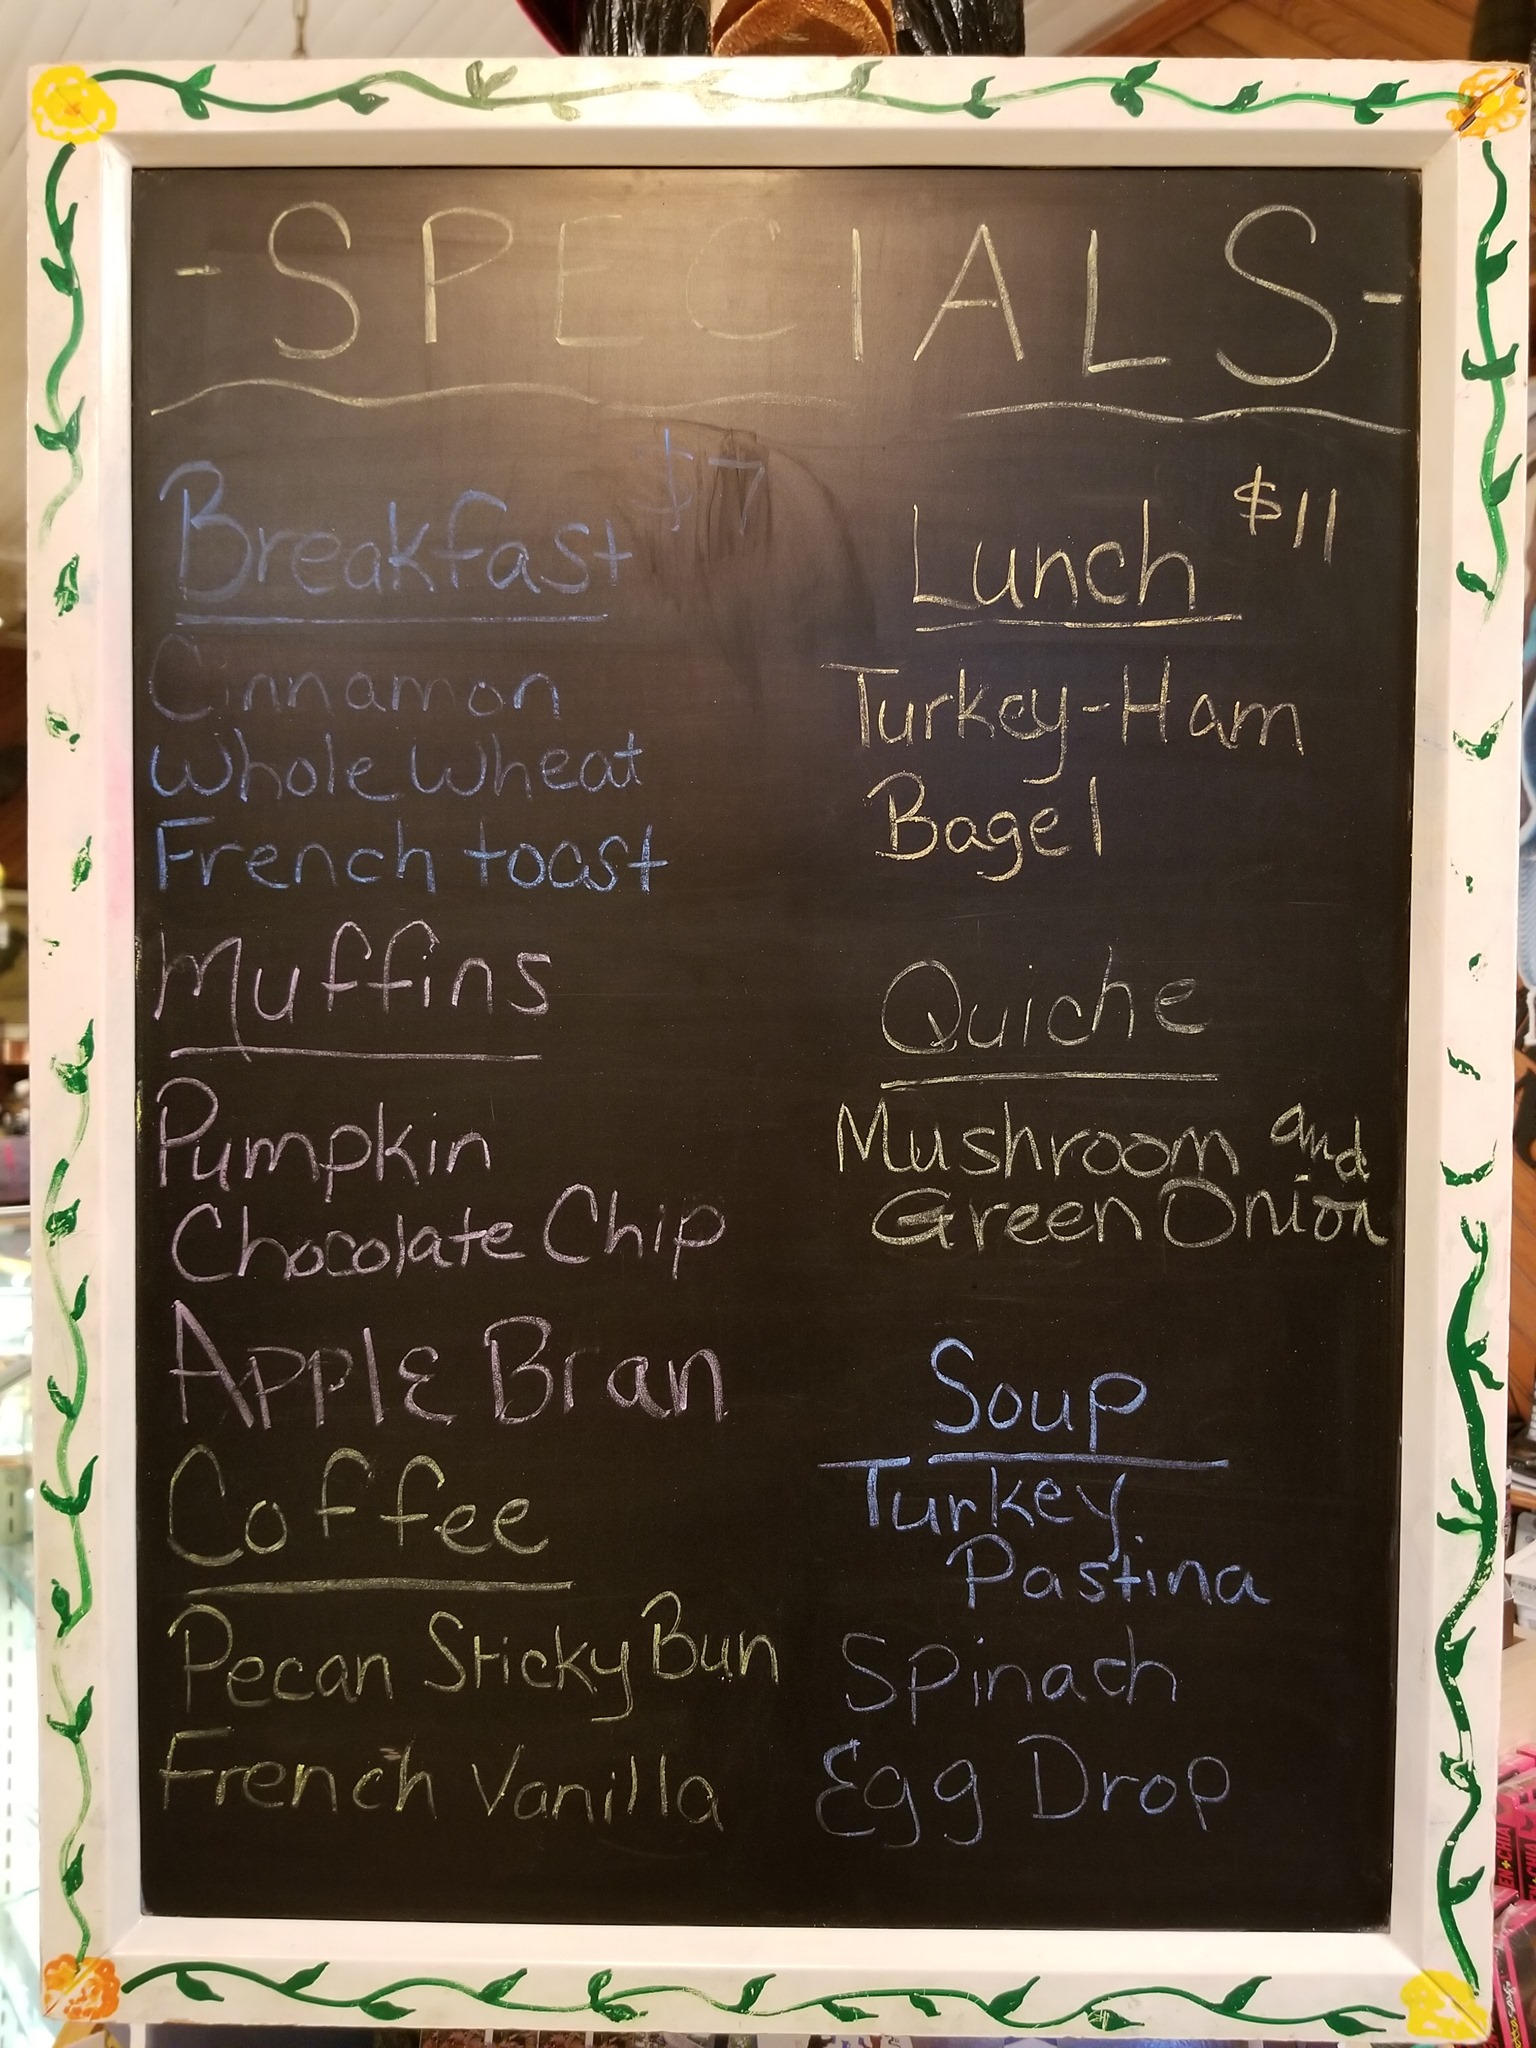 -SPECIALS-
Breakfast $7
Cinnamon
Whole Wheat
French toast
Muffins
Pumpkin
Chocolate Chip
Apple Bran
Coffee
Pecan Sticky Bun
French Vanilla
Lunch $11
Turkey-Ham
Bagel
Quiche
Mushroom and
Green Onion
Soup
Turkey
Pastina
Spinach
Egg Drop